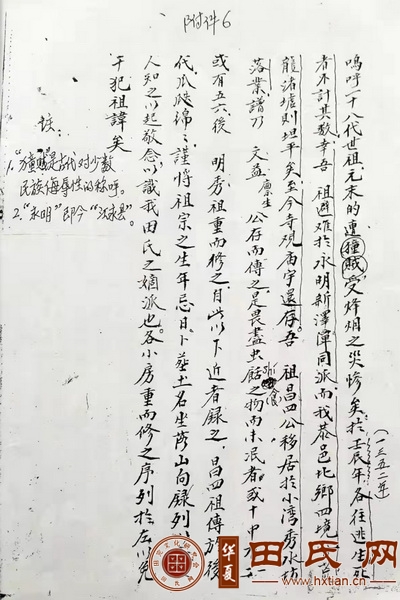 附件6
嗚呼十八代世祖元末的連獞賊受烽烟之災慘矣於壬辰年各往逃生死
(一三五二年)
者不計其数幸吾祖避难於永明新澤潭同派而我恭邑北鄉四境
龍渚墟則坦平矣至今寺观庙宇還存。吾祖昌四公移居於小湾秀水坊
落業譜乃文孟廪生公存而傳之是畏盡虫餂之物而未泯者或十中
蝕
或有五六後明秀祖重而修之自此以下近者録之昌四祖傳於後
代瓜瓞綿々謹將祖宗之生年忌日卜葬土名坐蔭山向録列
人知之以起敬念以識我田氏之嫡派也。各小房重而修之序列於左以免
干犯祖諱矣
註:
1. "獞賊"是古代对少数民族侮辱性的称呼。
2. "永明"即今"江永县"。
华夏
田氏网
www.hxtian.cn